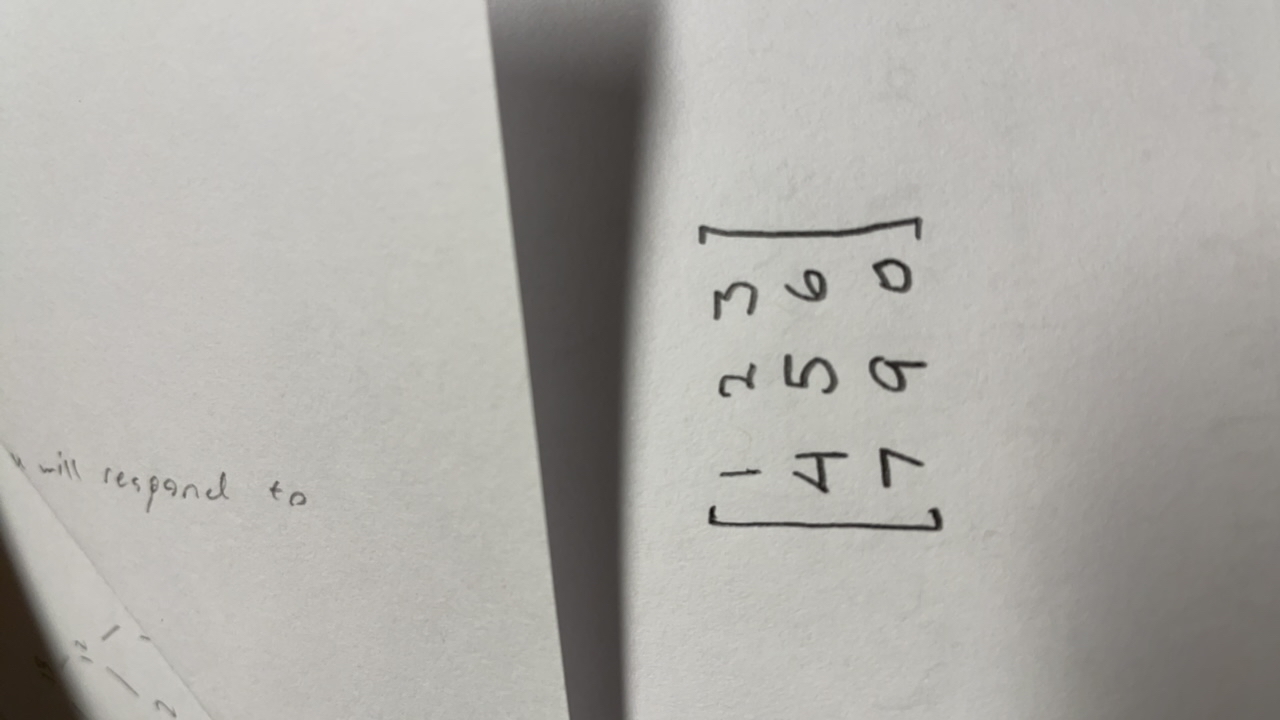 will respond to
12
2
[1 2 3
4 5 6
7 9 0]